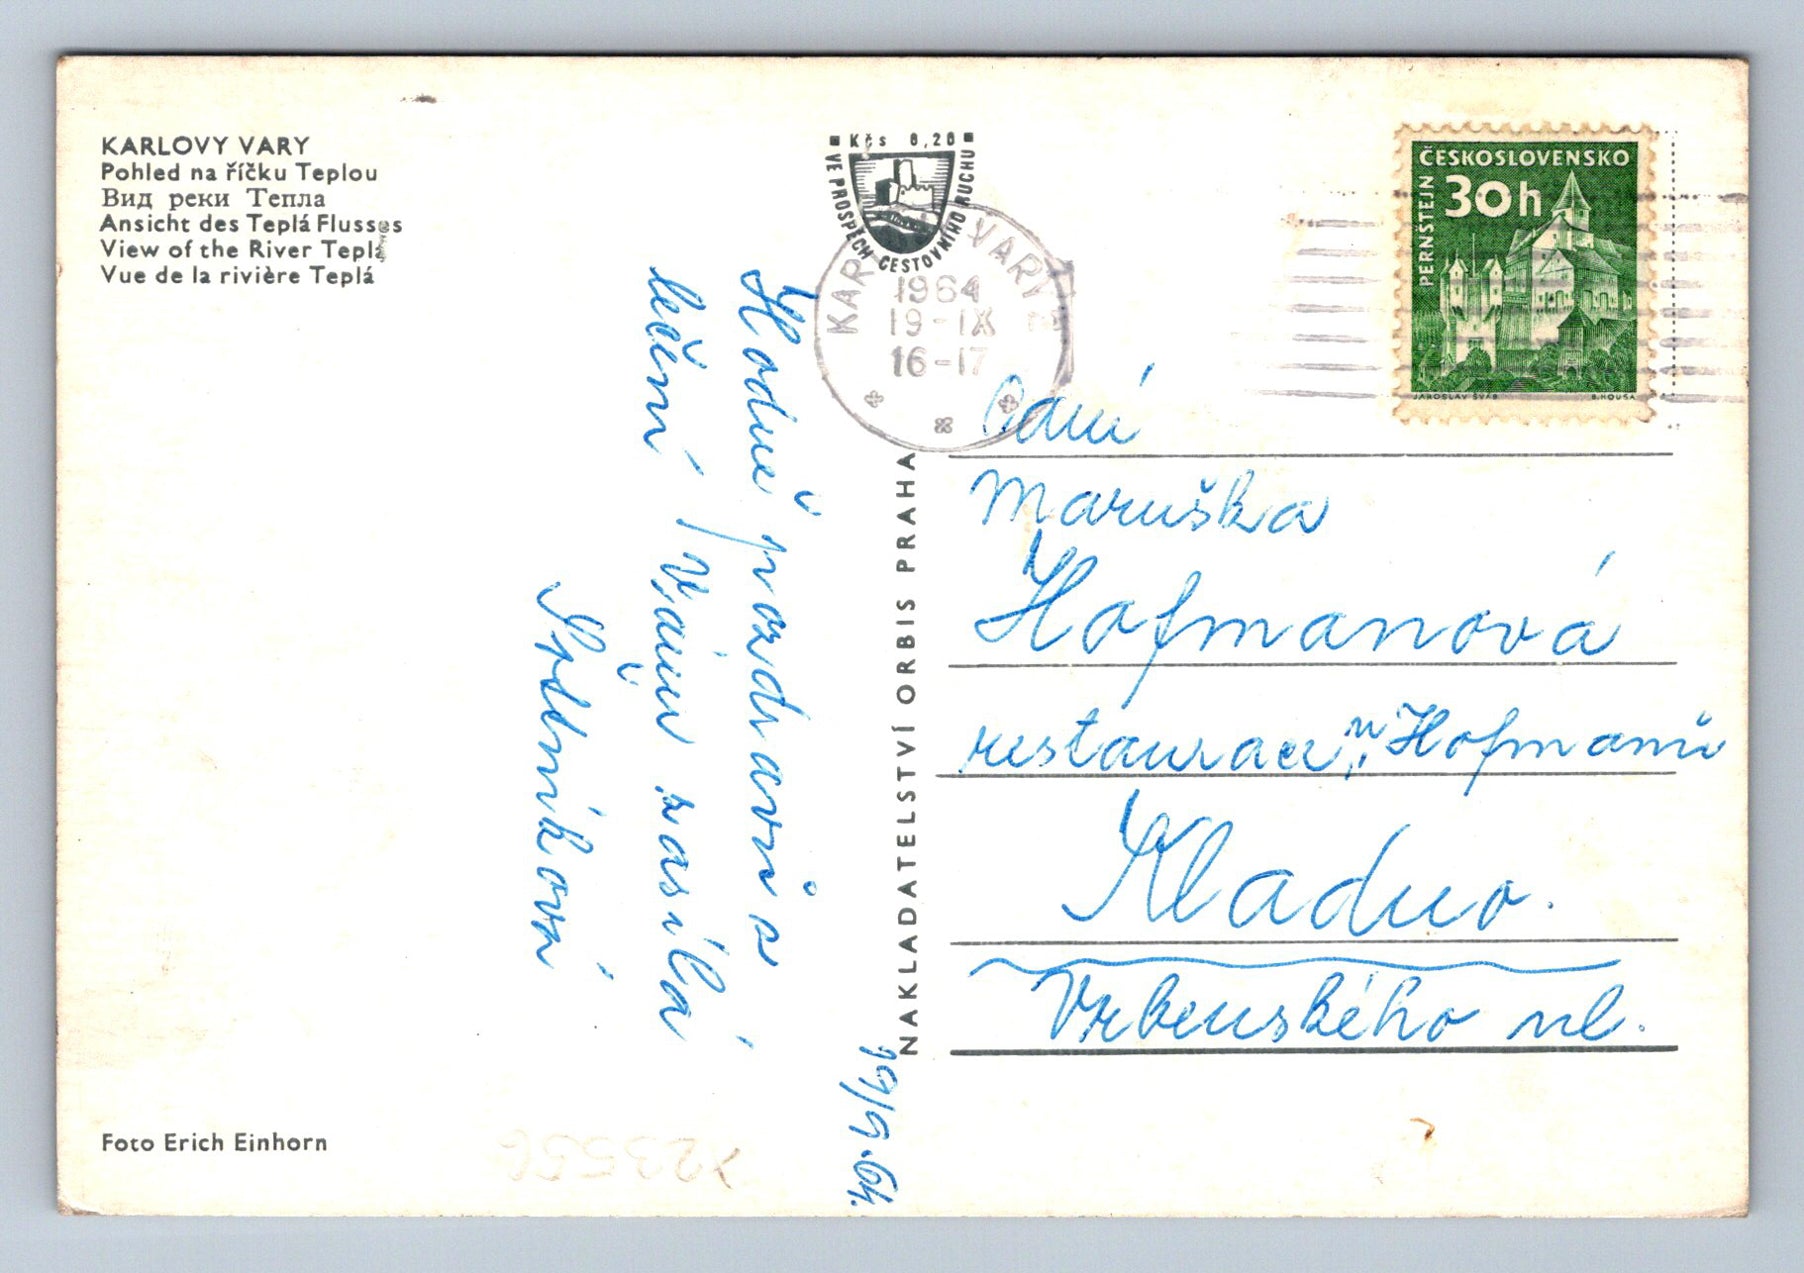 KARLOVY VARY
Pohled na říčku Teplou
Вид реки Тепла
Ansicht des Teplá Flusses
View of the River Teplá
Vue de la rivière Teplá
Kčs 0,20
VE PROSPĚCH CESTOVNÍHO RUCHU
KARLOVY VARY
1964
19-IX
16-17
ČESKOSLOVENSKO
30h
PERNŠTEJN
JAROSLAV ŠVÁB
B. HOUSA
19/9.64.
Hodně pozdravů s
léčení Vám zasílá
NAKLADATELSTVÍ ORBIS PRAHA
Maruška
Hofmanová
restaurace „u Hofmanů
Kladno.
Vrbenského ul.
Foto Erich Einhorn